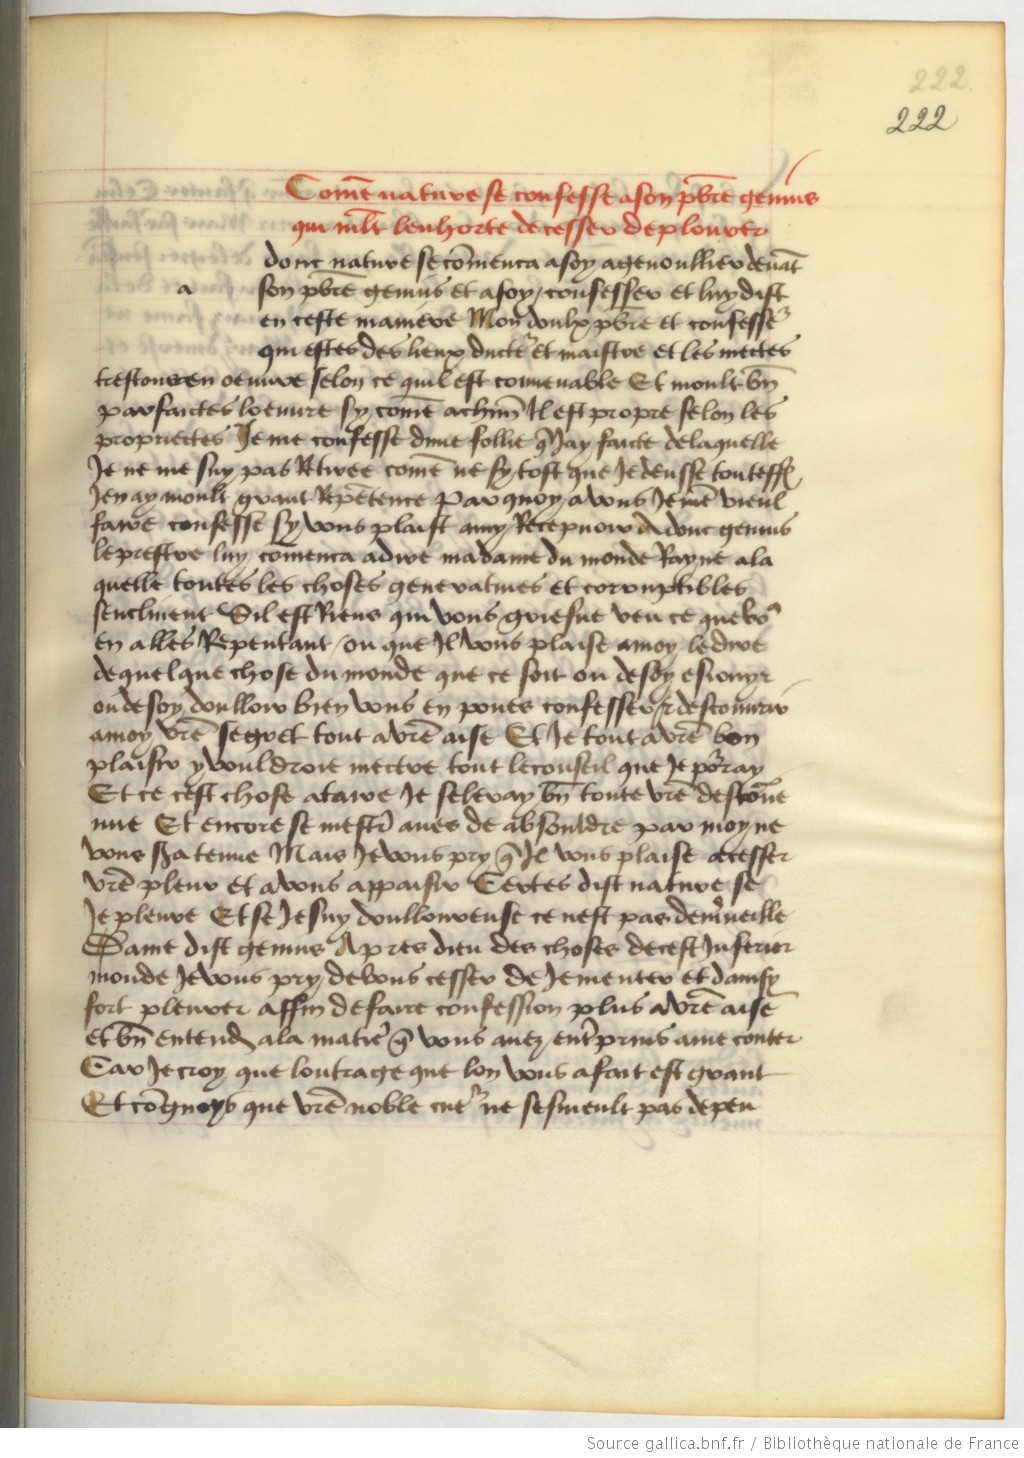 222
222
Come nature se confesse a son pbre genius
qui mlt lenhorte de cesser de plourer
donc nature se comenca a soy agenoullier devat
a son pbre genius et a soy confesser et luy dist
en ceste maniere Mon doulx pbre et confesse
qui estes des lieux et maistre et les mectes
trestous en oeuvre selon ce quil est convenable Et moult bn
parfaictes loeuure sy come Il est propre selon les
propriectes Je me confesse dune follie q Jay faicte de laquelle
Je ne me suy pas Rtiree come ne sy tost que Je deusse
Jen ay moult grant Repetence Par quoy a vous Je me vieul
faire confesse sy vous plaist amy Recepuoir Adonc genius
le prestre luy comenca a dire ma dame du monde Rayne a la
quelle toutes les choses generatiues et corruptibles
senclinent Sil est Riens qui vous griefue veu ce que vo
en alles Repentant ou que Il vous plaise a moy le dire
de quelque chose du monde que ce soit ou de soy esiouyr
ou de soy doulloir bien vous en poues confesser et descouurir
a moy vre segret tout a vre aise Et Je tout a vre bon
plaisir y vouldroie mectre tout le conseil que Je poray
Et ce cest chose a taire Je seleray bn toute vre
nue Et encore se mestr aues de absouldre par moy ne
vous sera tenue Mais Je vous pry q Il vous plaise a cesser
vre pleur et a vous appaisir Certes dist nature se
Je pleure Et se Je suy doulloureuse ce nest pas de merueille
Dame dist genius Apres dieu des choses de cest Inferior
monde Je vous pry de vous cesser de Iementer et dainsy
fort pleurer affin de faire confession plus a vre aise
et bn entendre a la matie q vous auez entprins a me conter
Car Je croy que loutrage que lon vous a fait est grant
Et congnoys que vre noble cuer ne sesmeult pas de peu
Source gallica.bnf.fr / Bibliothèque nationale de France